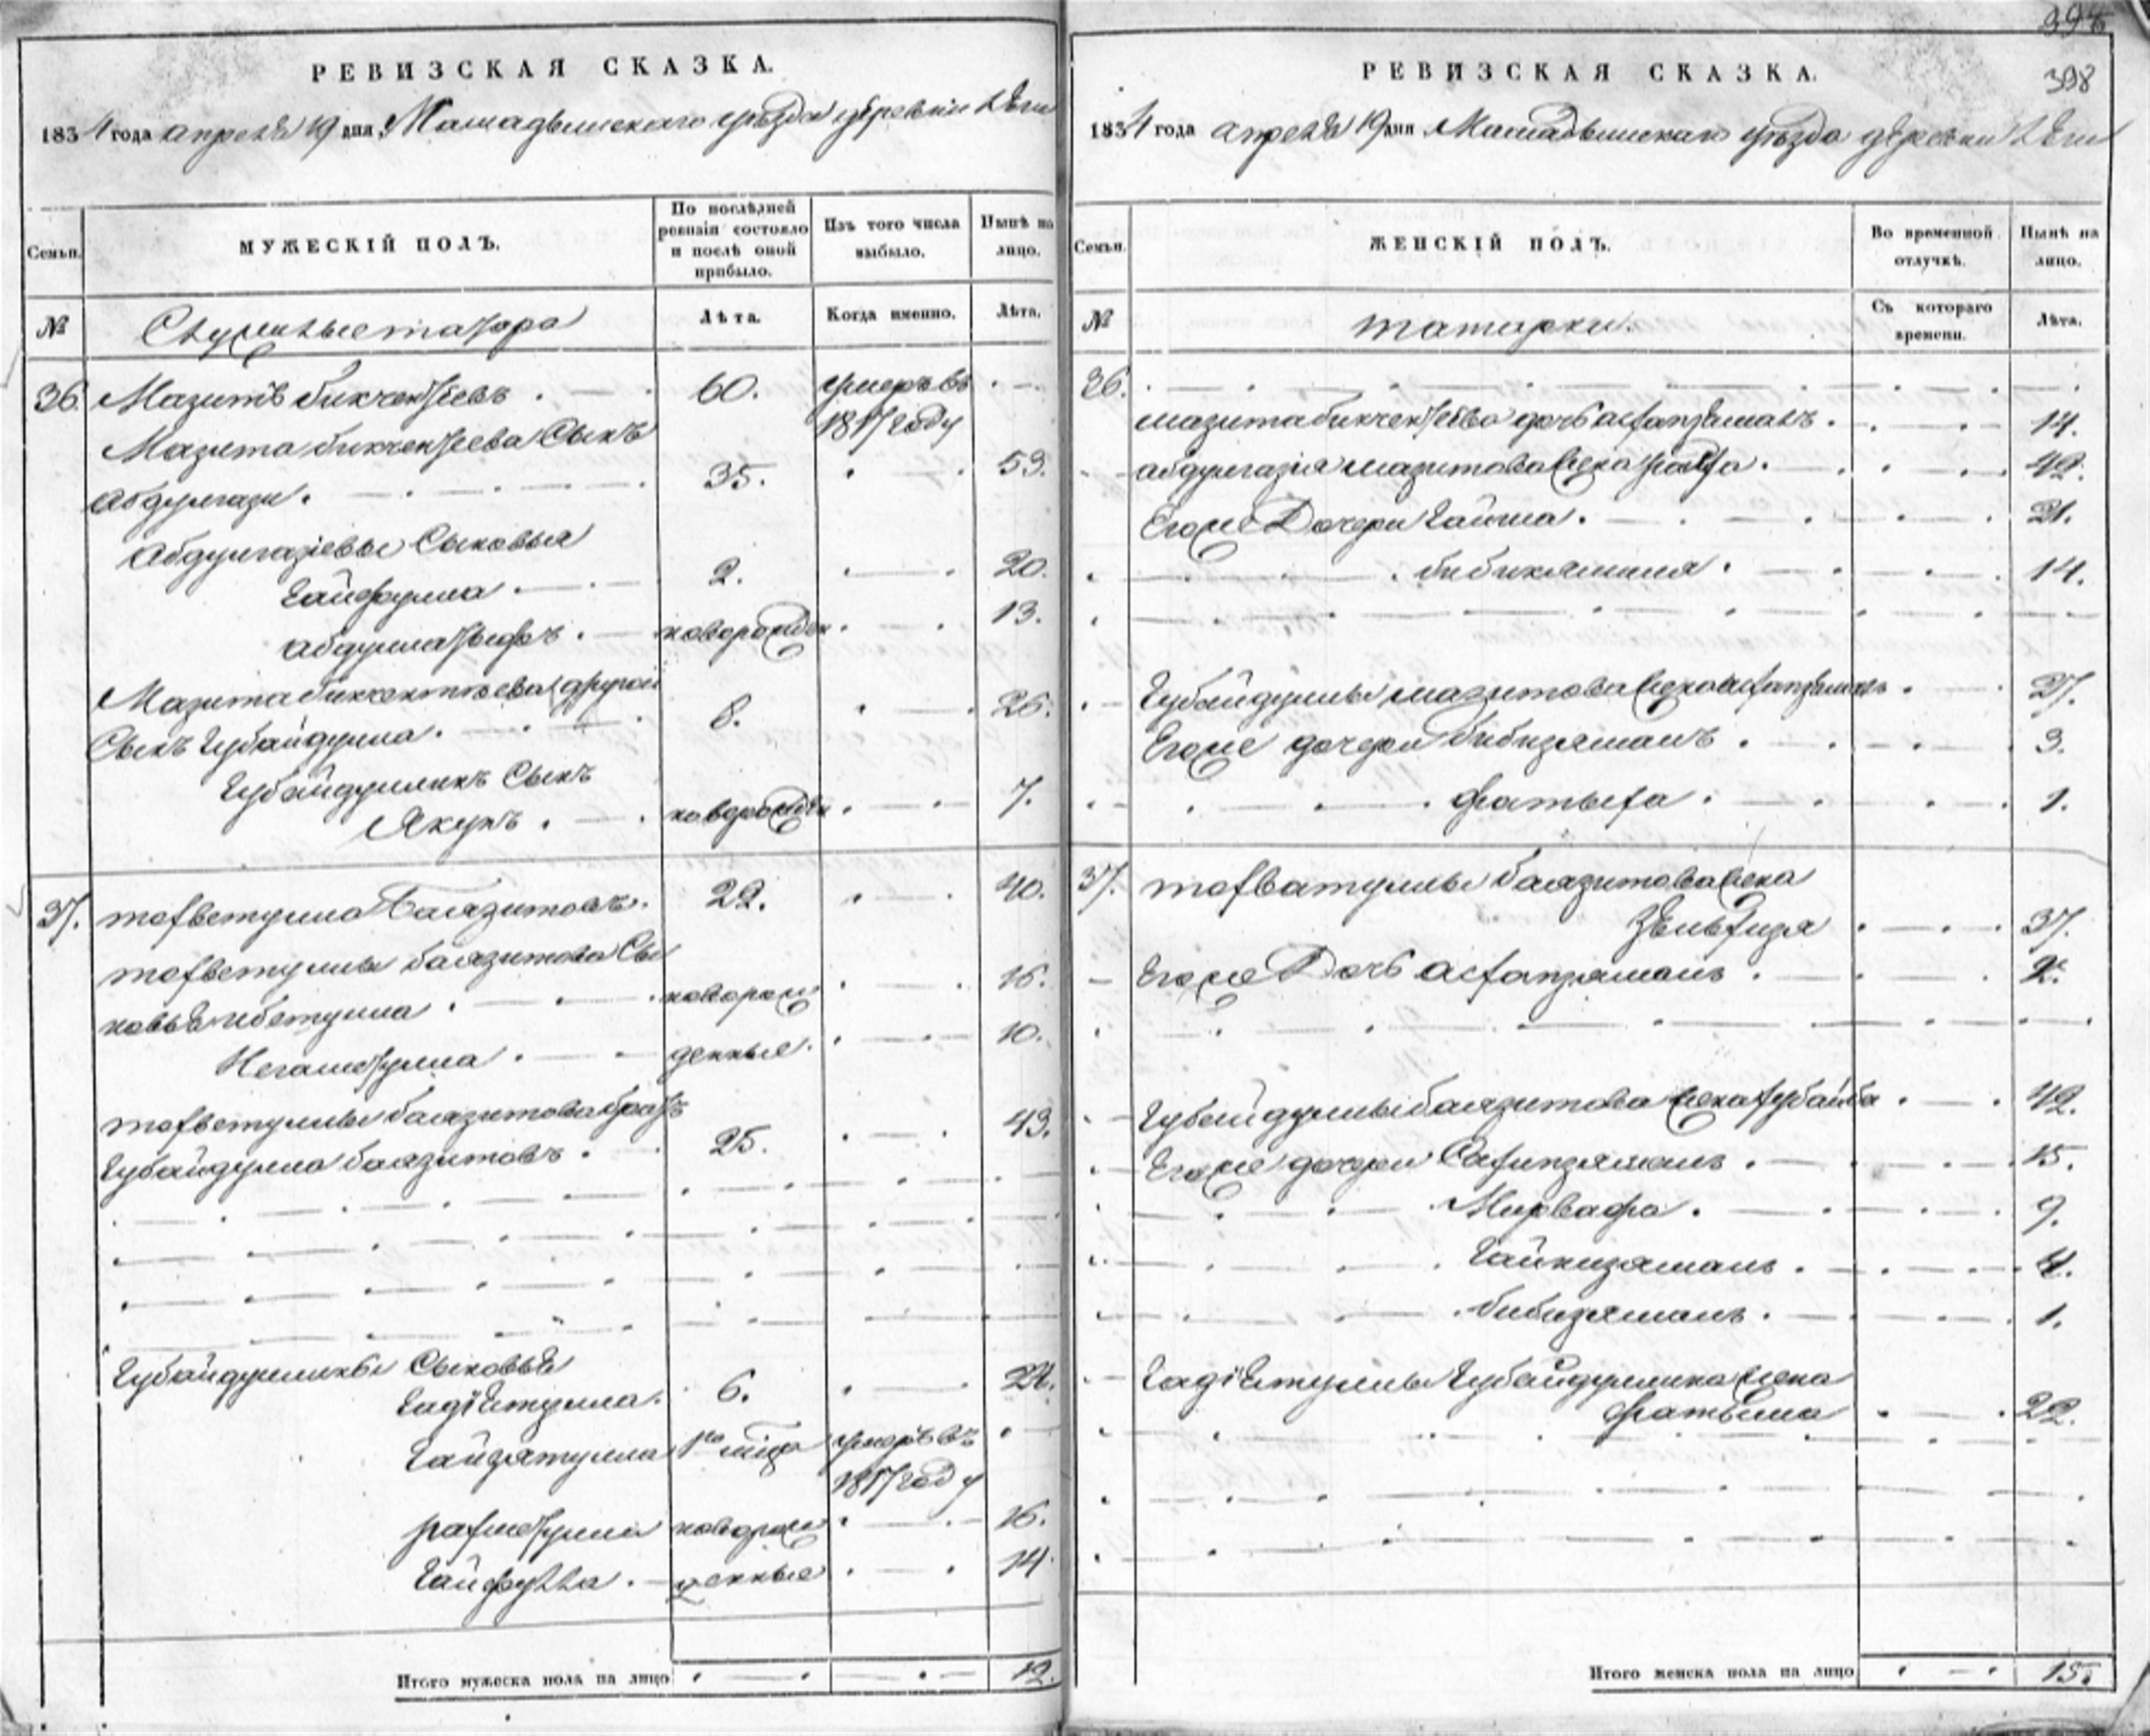 РЕВИЗСКАЯ СКАЗКА.
1834 года апреля 19 дня Мамадышскаго уезда деревни
Семьи. МУЖЕСКІЙ ПОЛЪ. По послѣдней ревизіи состояло и послѣ оной прибыло. Изъ того числа выбыло. Нынѣ на лицо.
№ Служилые татара Лѣта. Когда именно. Лѣта.
36. Мазитъ бикчентеевъ 60. умеръ въ
1817 году
Мазита бикчентеева Сынъ
Абдулгази. 35. 53.
Абдулгазіевы Сыновья
Гайфулла 2. 20.
абдуллатыфъ. новорожден 13.
Мазита бикчентѣева другой
Сынъ Губайдулла. 8. 26.
Губайдуллинъ Сынъ
Якупъ. новорожден 7.
37. тохветулла Баязитовъ. 22. 40.
тохветуллы баязитова Сы
новья ибетулла новорож 16.
Негаметулла. денные. 10.
тохветуллы баязитова братъ
Губайдулла баязитовъ. 25. 43.
Губайдуллины Сыновья
Гадіетулла. 6. 24.
Гайзятулла умеръ въ
1817 году
рахметулла новорож 16.
Гайфулла. денные 14.
Итого мужеска пола на лицо 12.
398
РЕВИЗСКАЯ СКАЗКА.
398
1834 года апреля 19 дня Мамадышскаго уезда деревни
Семьи. ЖЕНСКІЙ ПОЛЪ. Во временной отлучкѣ. Нынѣ на лицо.
№ татарки. Съ котораго времени. Лѣта.
36.
мазита бикчентеева дочь 14.
абдулгазія мазитова жена 42.
Егоже Дочери Гайша. 21.
бибикямиля. 14.
Губайдуллы мазитова жена 27.
Егоже дочери бибизямалъ. 3.
фатыха. 1.
37. тохватуллы баязитова жена
37.
Егоже Дочь ахтанзямалъ. 2.
Губайдуллы баязитова жена 42.
Егоже дочери Сахипзямалъ. 15.
Мирвафа. 9.
Гайнизямалъ. 4.
бибизямалъ. 1.
Гадіетуллы Губайдуллина жена
фатыма 22.
Итого женска пола на лицо 15.